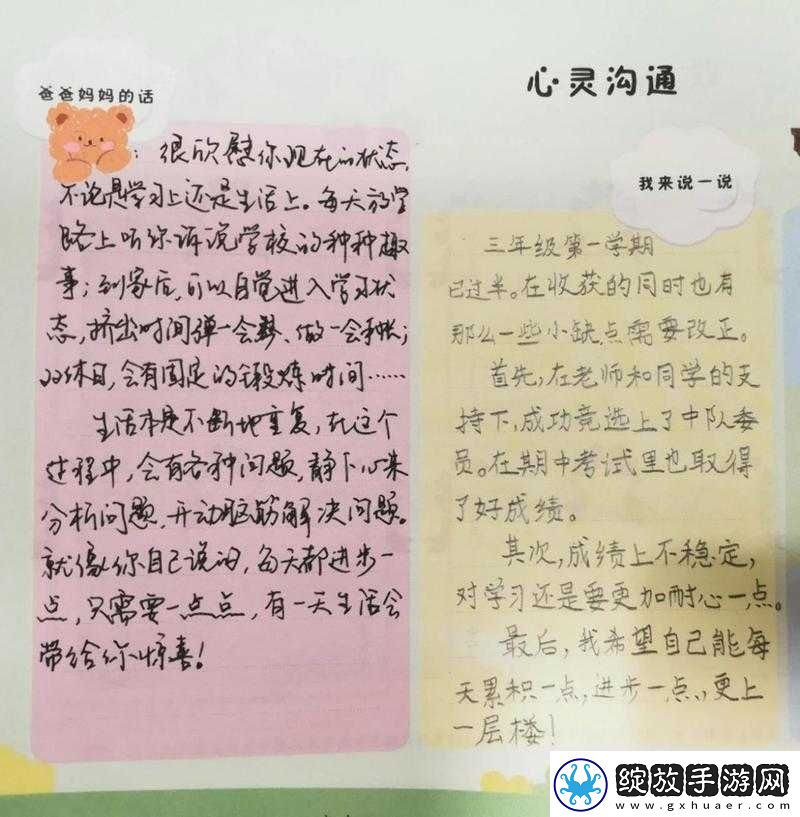 心灵沟通
爸爸妈妈的话
：很欣慰你现在的状态，
不论是学习上还是生活上。每天放学
路上听你诉说学校的种种趣
事；到家后，可以自觉进入学习状
态，挤出时间弹一会琴、做一会手帐；
双休日，会有固定的锻炼时间……
生活本是不断地重复，在这个
过程中，会有各种问题，静下心来
分析问题，开动脑筋解决问题。
就像你自己说的，每天都进步一
点，只需要一点点，有一天生活会
带给你惊喜！
我来说一说
三年级第一学期
已过半。在收获的同时也有
那么一些小缺点需要改正。
首先，在老师和同学的支
持下，成功竞选上了中队委
员。在期中考试里也取得
了好成绩。
其次，成绩上不稳定，
对学习还是要更加耐心一点。
最后，我希望自己能每
天累积一点，进步一点，更上
一层楼！
绽放手游网
www.gxhuaer.com